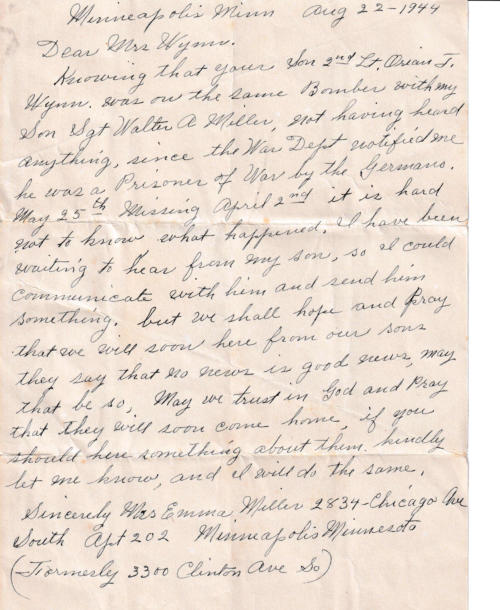 Minneapolis Minn Aug 22-1944
Dear Mrs Wynn.
Knowing that your Son 2nd Lt. Orian T.
Wynn. was on the same Bomber with my
Son Sgt Walter A Miller, not having heard
anything, since the War Dept notified me
he was a Prisoner of War by the Germans.
May 25th Missing April 2nd it is hard
not to know what happened. I have been
waiting to hear from my son, so I could
communicate with him and send him
something. but we shall hope and Pray
that we will soon here from our sons
they say that no news is good news, may
that be so. May we trust in God and Pray
that they will soon come home, if you
should here something about them. kindly
let me know, and I will do the same.
Sincerely Mrs Emma Miller 2834-Chicago Ave
South Apt 202 Minneapolis Minnesota
(Formerley 3300 Clinton Ave So)